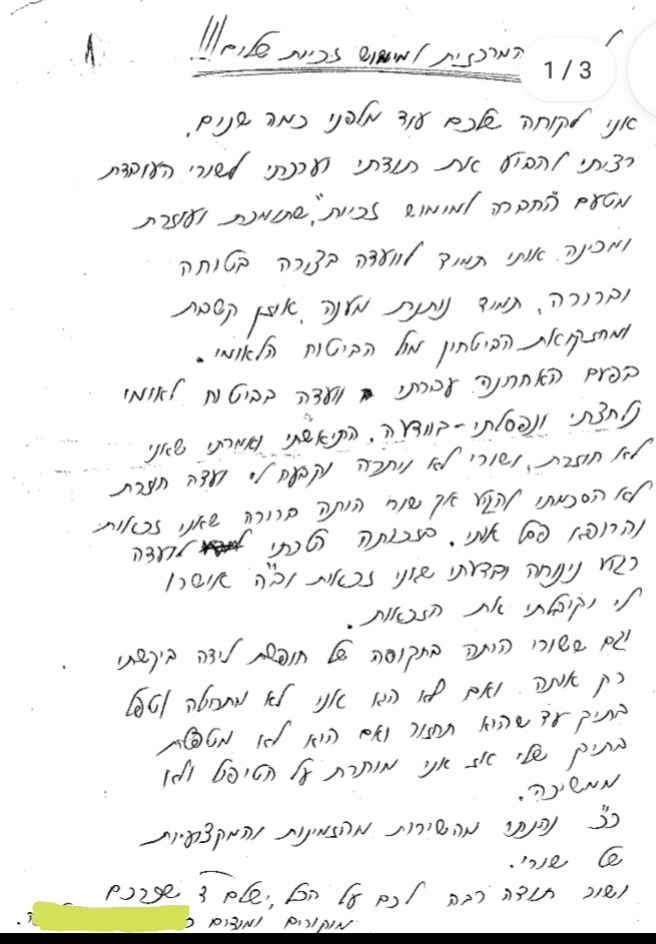 המרכזית למימוש זכויות שלום!!!
1/3
אני לקוחה שלכם עוד מלפני כמה שנים.
רציתי להביע את תודתי וערכתי לשורי העובדת
מטעם "החברה למימוש זכויות", שתומכת ועוזרת
ומכינה אותי תמיד לוועדה בצורה בטוחה
וברורה, תמיד נותנת מענה, אוזן קשבת
ומחזקת את הביטחון מול הביטוח הלאומי.
בפעם האחרונה עברתי וועדה בביטוח לאומי
נלחצתי ונפסלתי בוועדה, התיאשתי ואמרתי שאני
לא חוזרת, ושורי לא ויתרה וקבעה לי ועדה חוזרת
לא הסכמתי להגיע אך שורי היתה ברורה שאני זכאית
והרופא פסל אותי. בזכותה הלכתי לועדה
רגע נינוחה וידעתי שאני זכאית וב"ה אישרו
לי וקיבלתי את הזכאות.
וגם ששורי היתה בתקופה של חופשת לידה ביקשתי
רק אותה ואם לא היא אני לא מתחילה וטפל
בתיק עד שהיא תחזור ואם היא לא מטפלת
בתיק שלי אז אני מוותרת על הטיפול ולא
ממשיכה.
כ"כ נהנתי מהשירות מהזמינות והמקצועיות
של שורי.
ושוב תודה רבה לכם על הכל, ישלם ד' שכרכם